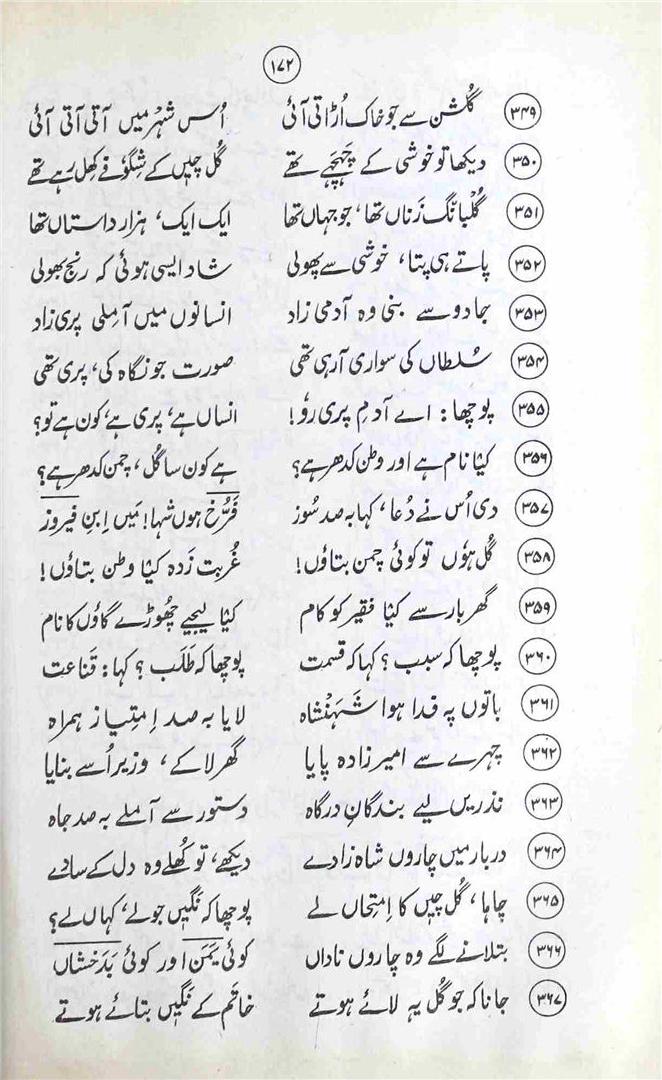 ۱۷۲
۳۴۹ گُلشن سے جو خاک اُڑاتی آئی اُس شہر میں آتی آتی آئی
۳۵۰ دیکھا تو خوشی کے چہچہے تھے گُل چیں کے شگوفے کھِل رہے تھے
۳۵۱ گُلبانگ زَناں تھا، جو جہاں تھا ایک ایک، ہزار داستاں تھا
۳۵۲ پاتے ہی پتا، خوشی سے پھولی شاد ایسی ہوئی کہ رنج بھولی
۳۵۳ جادو سے بنی وہ آدمی زاد انسانوں میں آ مِلی پری زاد
۳۵۴ سُلطاں کی سواری آ رہی تھی صورت جو نگاہ کی، پری تھی
۳۵۵ پوچھا: اے آدمِ پری رؤ! انساں ہے، پری ہے، کون ہے تو؟
۳۵۶ کیا نام ہے اور وطن کدھر ہے؟ ہے کون سا گُل، چمن کدھر ہے؟
۳۵۷ دی اُس نے دُعا، کہا بہ صد سُوز فَرُّخ ہوں شہا! مَیں اِبنِ فیروز
۳۵۸ گُل ہوٗں تو کوئی چمن بتاؤں! غُربت زَدہ کیا وطن بتاؤں!
۳۵۹ گھر بار سے کیا فقیر کو کام کیا لیجیے چھوڑے گاؤں کا نام
۳۶۰ پوچھا کہ سبب؟ کہا کہ قسمت پوچھا کہ طَلَب؟ کہا: قَناعت
۳۶۱ باتوں پہ فدا ہوا شَہَنْشاہ لایا بہ صد اِمتِیاز ہمراہ
۳۶۲ چہرے سے امیر زادہ پایا گھر لا کے، وزیر اُسے بنایا
۳۶۳ نذریں لیے بندگانِ درگاہ دستور سے آ ملے بہ صد جاہ
۳۶۴ دربار میں چاروں شاہ زادے دیکھے، تو کھُلے وہ دل کے سادے
۳۶۵ چاہا، گُل چیں کا اِمتحاں لے پوچھا کہ نَگیں جو لے، کہاں لے؟
۳۶۶ بتلانے لگے وہ چاروں ناداں کوئی یَمَن اور کوئی بَدَخشاں
۳۶۷ جانا کہ جو گُل یہ لائے ہوتے خاتَم کے نَگیں بتائے ہوتے